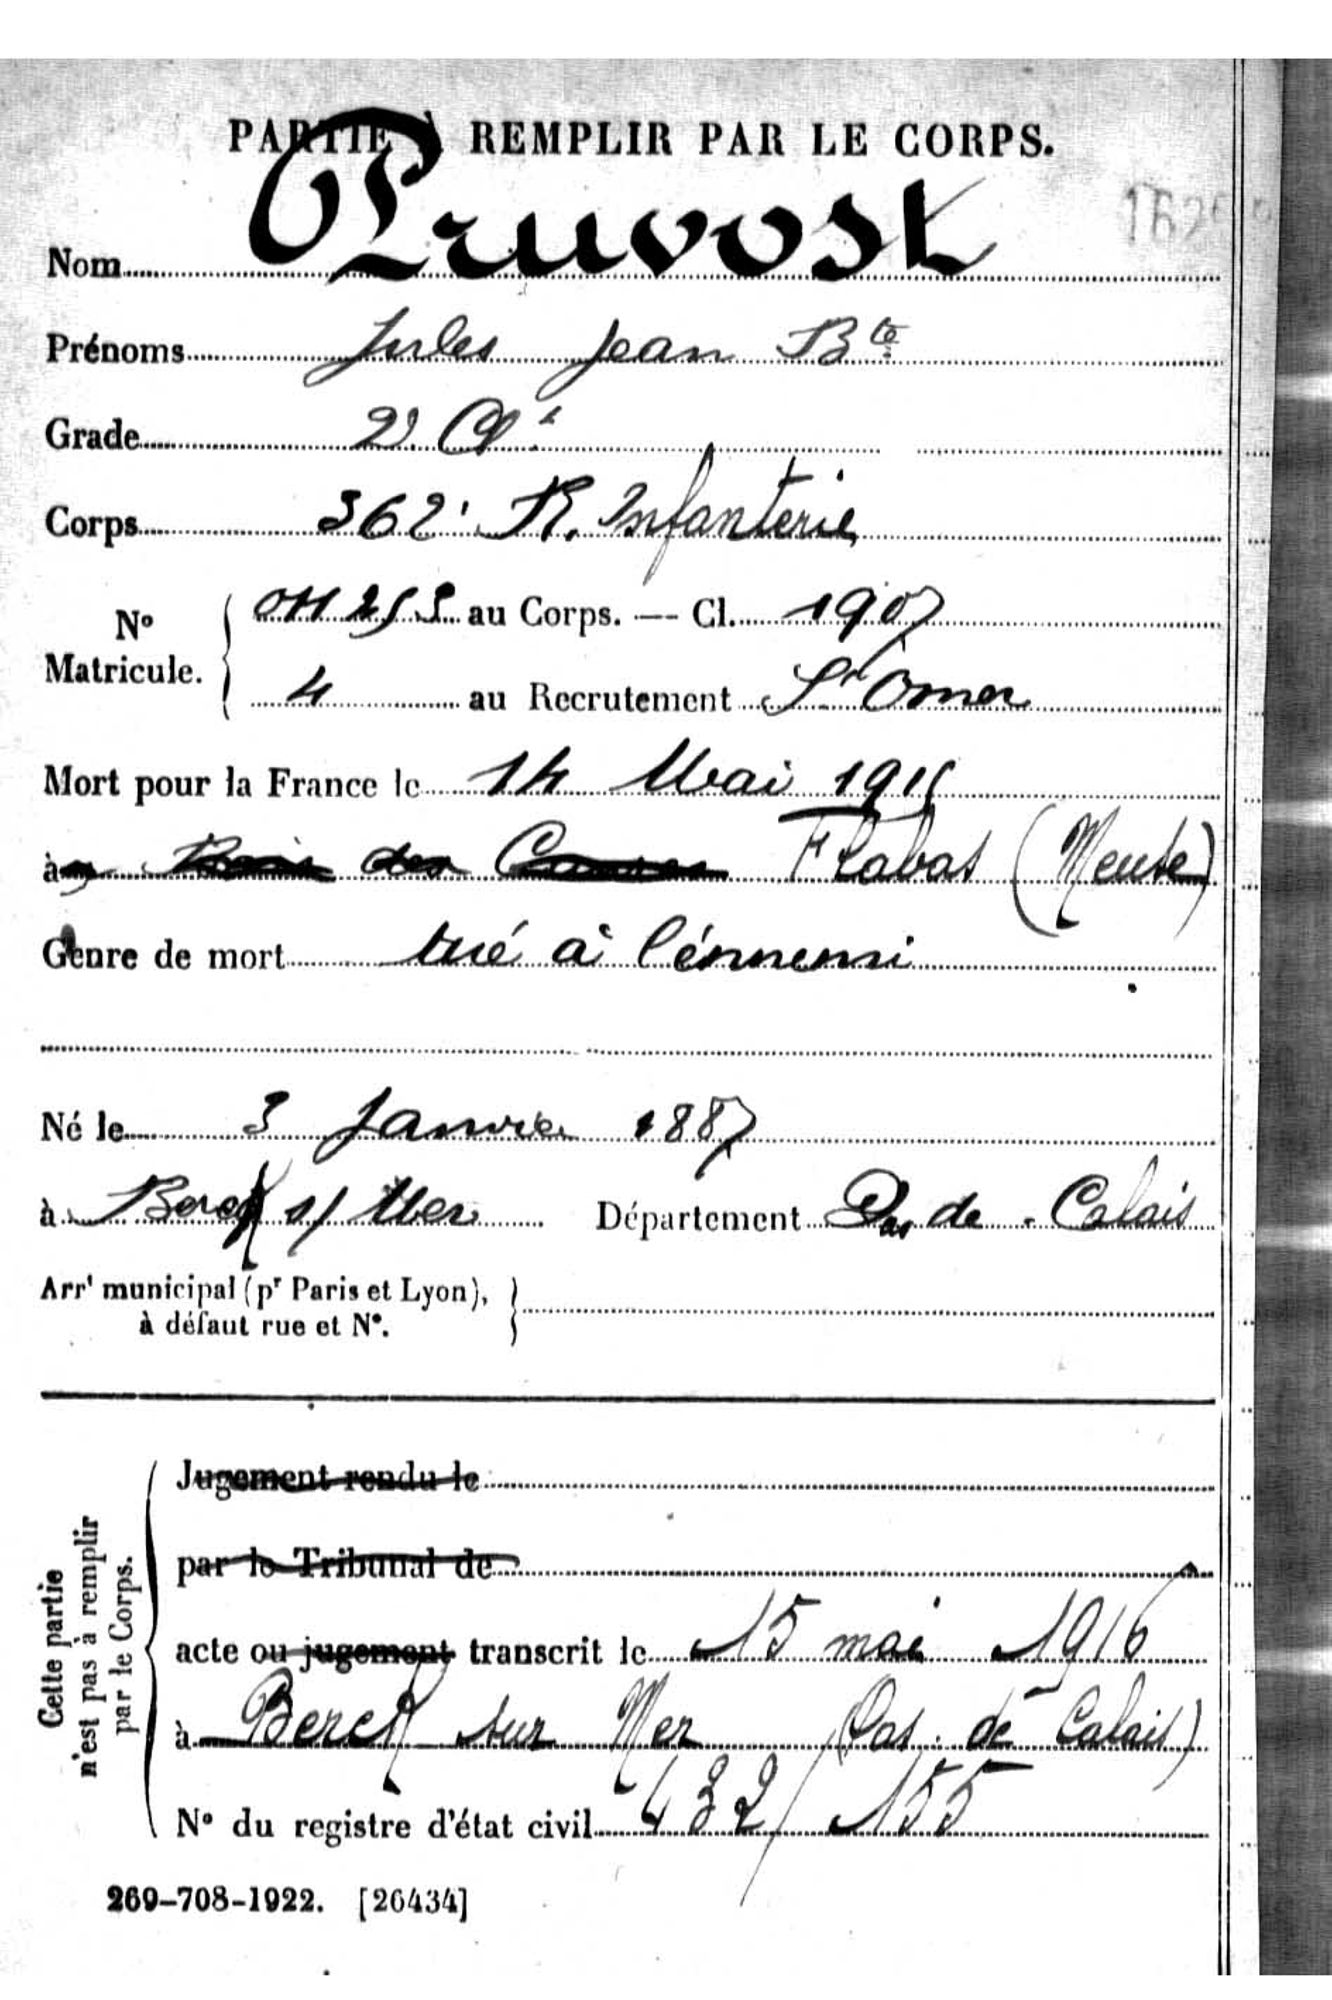 PARTIE À REMPLIR PAR LE CORPS.
Nom Pruvost
Prénoms Jules Jean Bte
Grade 2e Cl
Corps 362e R. Infanterie
No Matricule. au Corps. — Cl. 1907
4 au Recrutement St Omer
Mort pour la France le 14 Mai 1915
à Bois des Caures Flabas (Meuse)
Genre de mort tué à l'énnemi
Né le 3 Janvier 1887
à Berck s/ Mer Département Pas de - Calais
Arrt municipal (pr Paris et Lyon),
à défaut rue et No.
Cette partie
n'est pas à remplir
par le Corps.
Jugement rendu le
par le Tribunal de
acte ou jugement transcrit le 15 mai 1916
à Berck sur Mer (Pas de Calais)
No du registre d'état civil 432/155
269-708-1922. [26434]